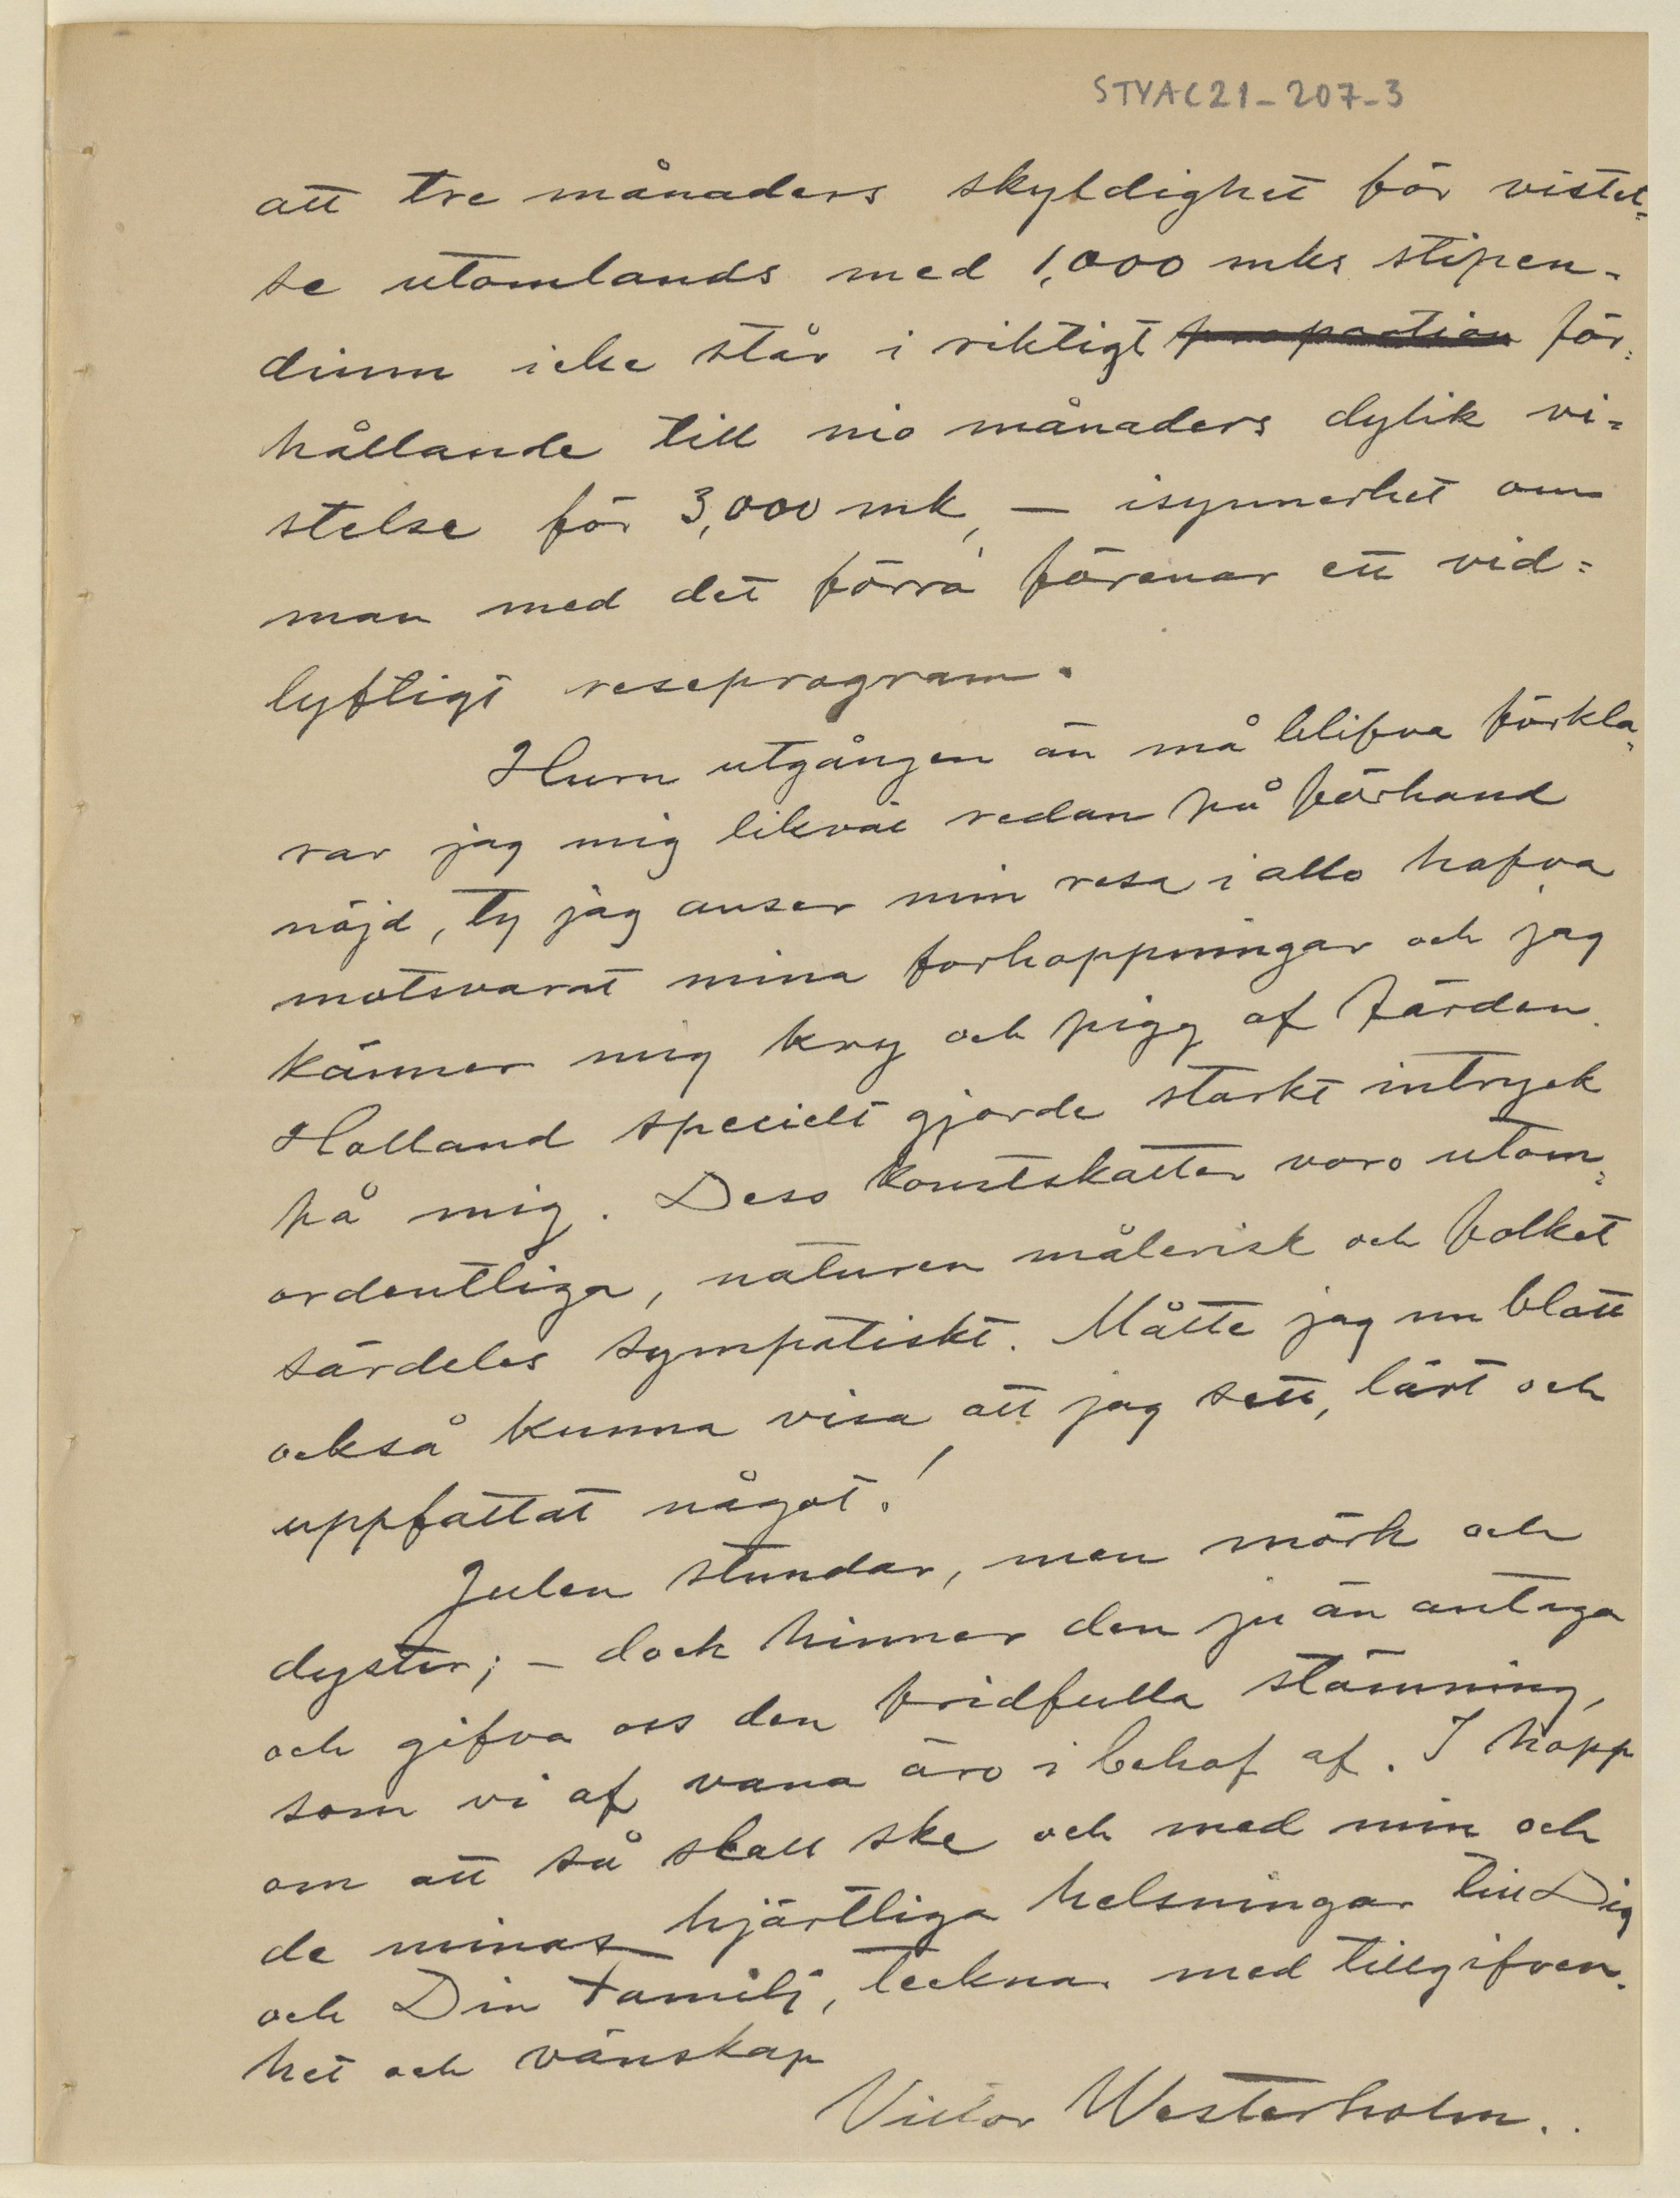 STYAC21-207-3
att tre månaders skyldighet för vistel=
se utomlands med 1,000 mks stipen-
dium icke står i riktigt proportion för=
hållande till nio månaders dylik vi=
stelse för 3,000 mk, — isynnerhet om
man med det förra förenar ett vid=
lyftigt reseprogram.
Huru utgången än må blifva förkla=
rar jag mig likväl redan på förhand
nöjd, ty jag anser min resa i allo hafva
motsvarat mina forhoppningar och jag
känner mig kry och pigg af färden.
Holland specielt gjorde starkt intryck
på mig. Dess konstskatter voro utom=
ordentliga, naturen målerisk och folket
särdeles sympatiskt. Måtte jag nu blott
också kunna visa att jag sett, lärt och
uppfattat något!
Julen stundar, men mörk och
dyster; – dock hinner den ju än antaga
och gifva oss den fridfulla stämning,
som vi af vana äro i behof af. I hopp
om att så skall ske och med min och
de minas hjärtliga helsningar till Dig
och Din familj, tecknar med tillgifven-
het och vänskap
Victor Westerholm.